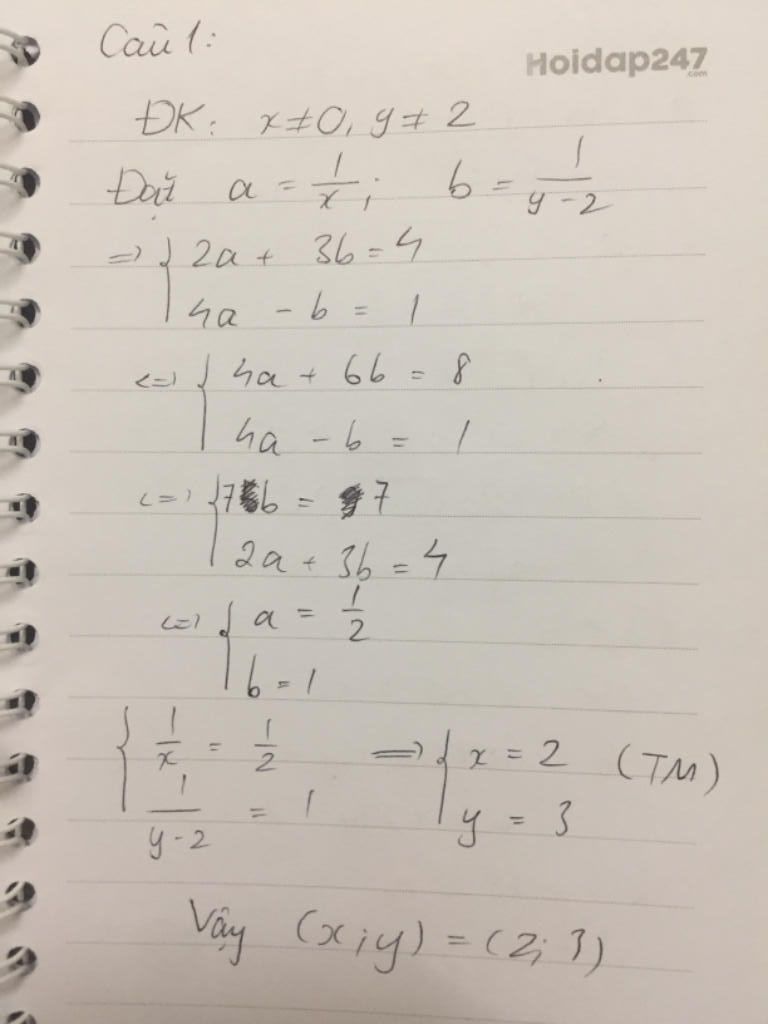 Câu 1:
Hoidap247
.com
ĐK: x ≠ 0, y ≠ 2
Đặt a = 1/x ; b = 1/(y - 2)
=> { 2a + 3b = 4
4a - b = 1
<=> { 4a + 6b = 8
4a - b = 1
<=> { 7b = 7
2a + 3b = 4
<=> { a = 1/2
b = 1
{ 1/x = 1/2 => { x = 2 (TM)
1/(y - 2) = 1 y = 3
Vậy (x; y) = (2; 3)